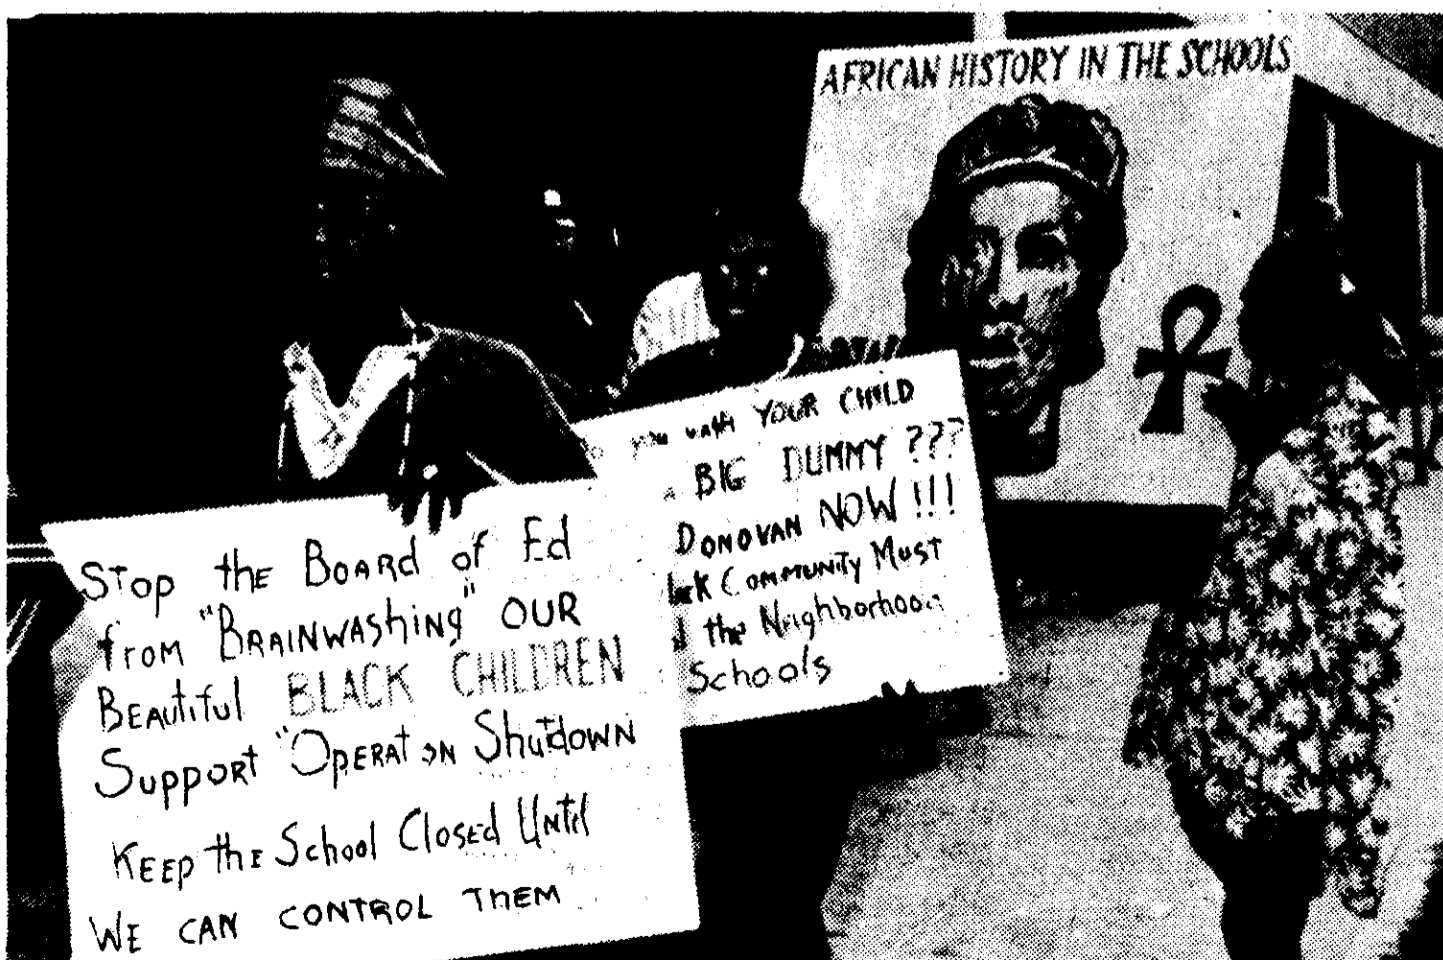 AFRICAN HISTORY IN THE SCHOOLS
STOP the BOARD of Ed
from "BRAINWAShiNg" OUR
BEAutiful BLACK CHILDREN
SuppoRt "OPERAT ON ShutdowN
KEEp thE School ClosEd UNtil
WE CAN CONTROL ThEM
you want YOUR CHILD
a BIG DUMMY ???
DONOVAN NOW !!!
COMMUNITY MuST
the Neighborhood
Schools